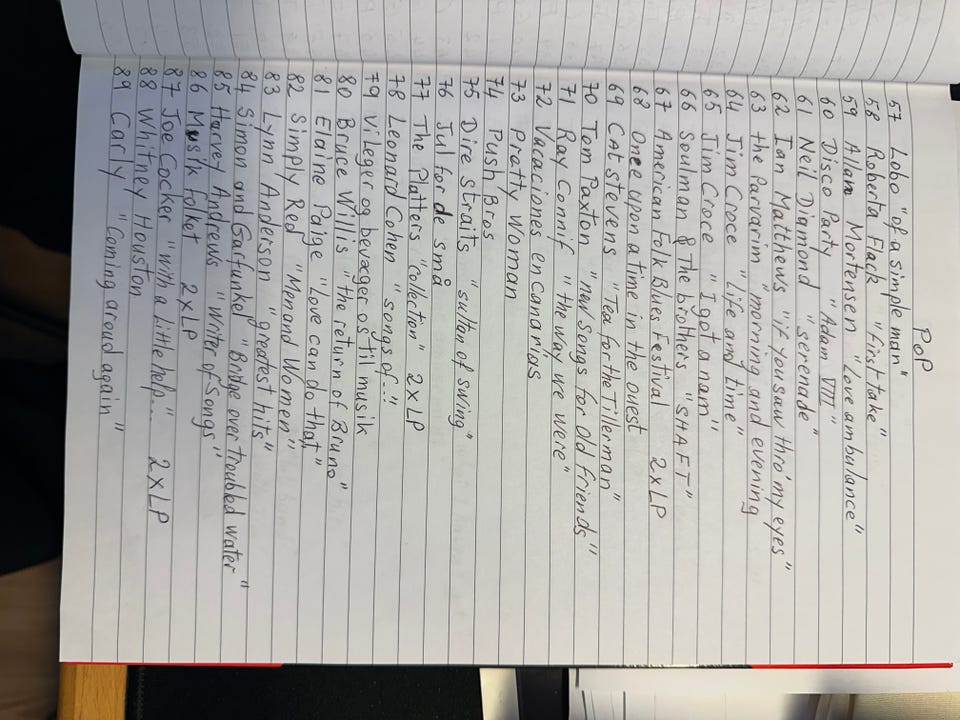 POP
57 Lobo "of a simple man"
58 Roberta Flack "first take"
59 Allan Mortensen "Love ambulance"
60 Disco Party "Adam VIII"
61 Neil Diamond "serenade"
62 Ian Matthews "if you saw thro' my eyes"
63 the Parvarim "morning and evening
64 Jim Croce "Life and time"
65 Jim Croce "I got a nam"
66 Soulman & The brothers "SHAFT"
67 American Folk Blues Festival 2xLP
68 Once upon a time in the ouest
69 Cat stevens "Tea for the Tillerman"
70 Tom Paxton "new songs for old friends"
71 Ray Connif "the way we were"
72 Vacaciones en canarias
73 Pratty Woman
74 Push Bros
75 Dire Straits "sultan of swing"
76 Jul for de små
77 The Platters "collection" 2xLP
78 Leonard Cohen "songs of.."
79 vi leger og bevæger os til musik
80 Bruce Willis "the return of Bruno"
81 Elaine Paige "Love can do that"
82 Simply Red "Men and Women"
83 Lynn Anderson "greatest hits"
84 Simon and Garfunkel "Bridge over troubled water"
85 Harvey Andrews "Writer of songs"
86 Musik folket 2xLP
87 Joe Cocker "with a little help..." 2xLP
88 Whitney Houston
89 Carly "Coming aroud again"